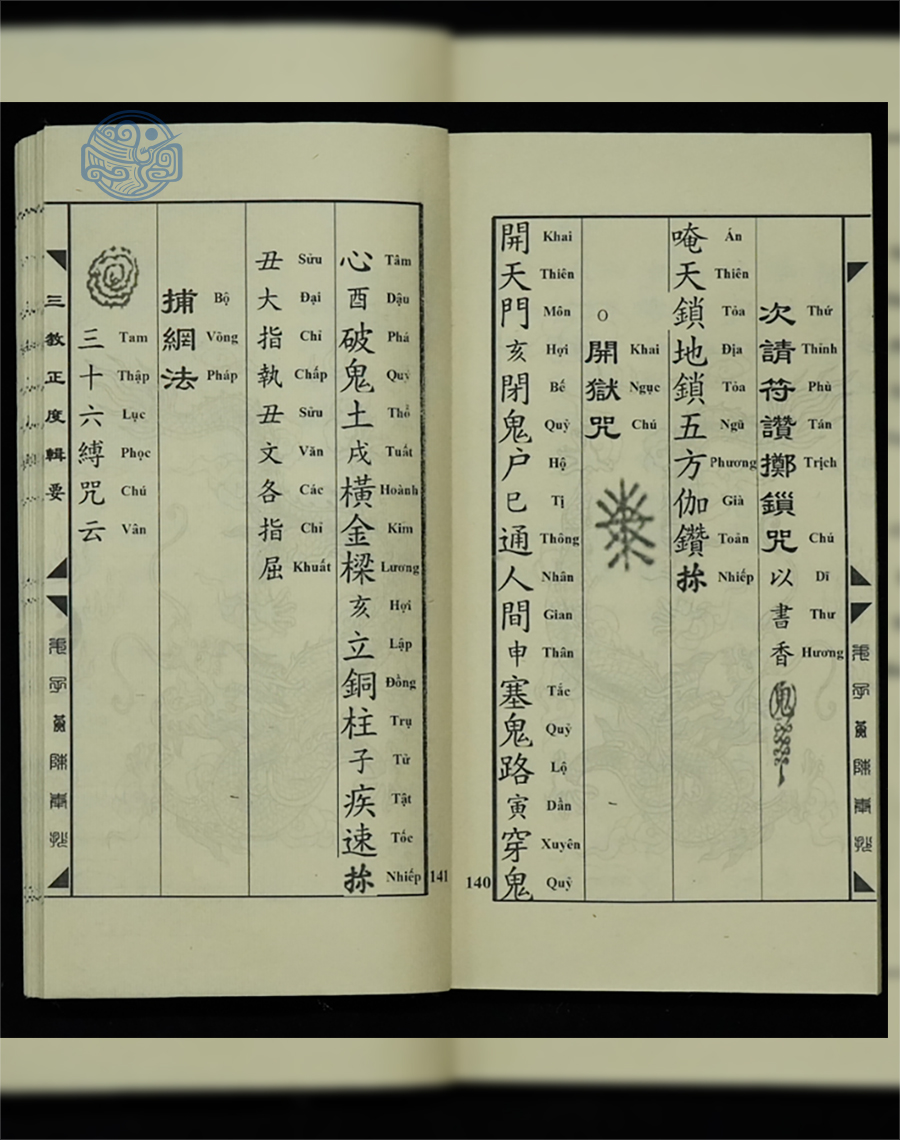 次請符讚擲鎻咒以書香
Thứ Thỉnh Phù Tán Trịch Chú Dĩ Thư Hương
唵天鎖地鎖五方伽鑽
Án Thiên Tỏa Địa Tỏa Ngũ Phương Già Toản Nhiếp
O 開獄咒
Khai Ngục Chú
開天門亥閉鬼户巳通人間申塞鬼路寅穿鬼
Khai Thiên Môn Hợi Bế Quỷ Hộ Tị Thông Nhân Gian Thân Tắc Quỷ Lộ Dần Xuyên Quỷ
140
心酉破鬼土戌橫金樑亥立銅柱子疾速
Tâm Dậu Phá Quỷ Thổ Tuất Hoành Kim Lương Hợi Lập Đồng Trụ Tử Tật Tốc Nhiếp
丑大指執丑文各指屈
Sửu Đại Chỉ Chấp Sửu Văn Các Chỉ Khuất
捕網法
Bộ Võng Pháp
三十六縛咒云
Tam Thập Lục Phọc Chú Vân
三教正度輯要
141